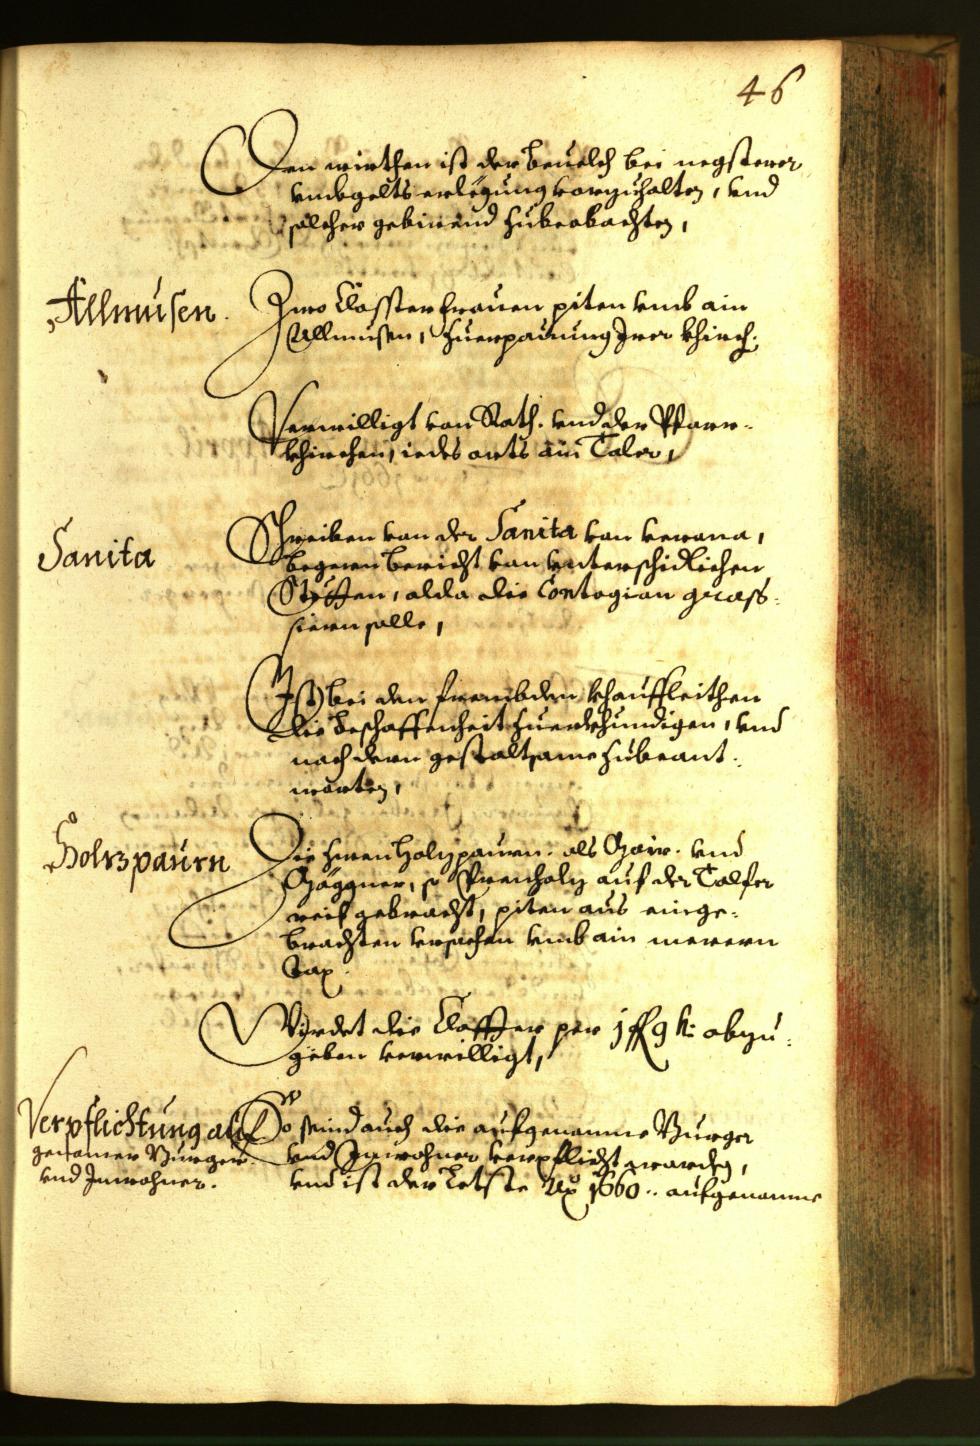 46
Den wirthen ist der beuelch bei negsterer
vmbgelts erlegung vorzuhalten, vnd
solches gebirend zubeobachten,
Allmusen.
Zwo Closster frauen piten vmb ain
Allmusen, zuerpauung Irer khirch.
Verwilligt von Rath. vnd der Pfarr-
khirchen, iedes orts ain Taler,
Sanita
Schreiben von der Sanita von verona,
begern bericht von vnterschidlichen
Stötten, alda die Contagion grass:
siern solle,
Ist bei den frembden khauffleithen
die beschaffenheit zuerkhundigen, vnd
nach dern gestaltsame zubeant:
worten,
Holzpaurn
Die holzpaurn. als Mair. vnd
Gäggner, so Prenholz auf der Talfer
reif gebracht, piten aus einge:
brachten vrsachen vmb ain merern
Tax.
Wirdet die Claffter per 1 fl 9 kr abzu:
geben verwilligt,
Verpflichtung auf
genomner Burger
vnd Inwohner.
So seind auch die aufgenomne Burger
vnd Inwohner verpflicht worden,
vnd ist der letste Ao 1660.. aufgenomne